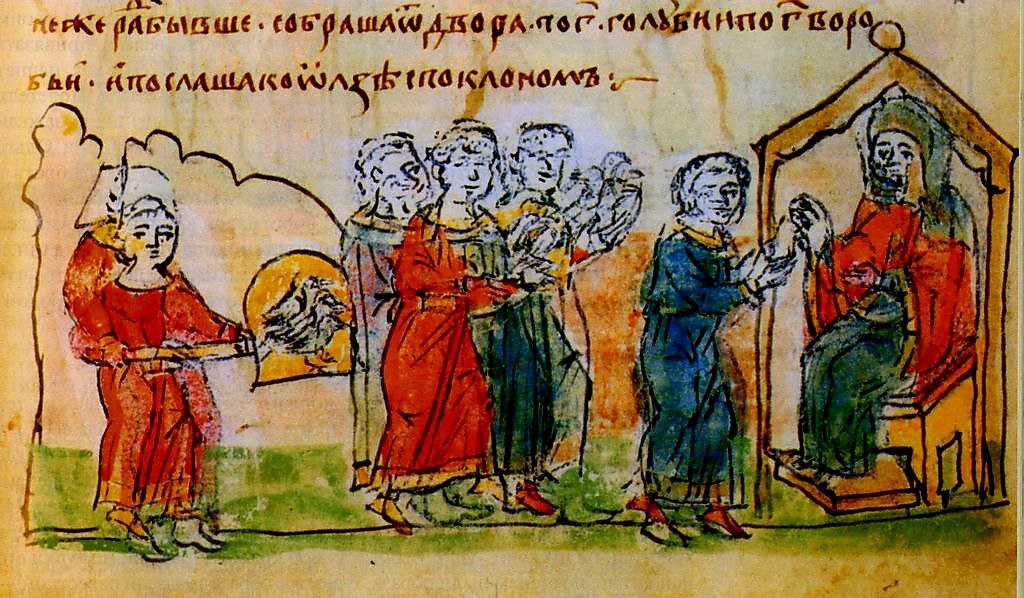 неже ради бывше · собраша ѿ двора · по г҃ · голуби и по г҃ воро
бьи · и послаша ко ѡлзѣ с поклономъ :~